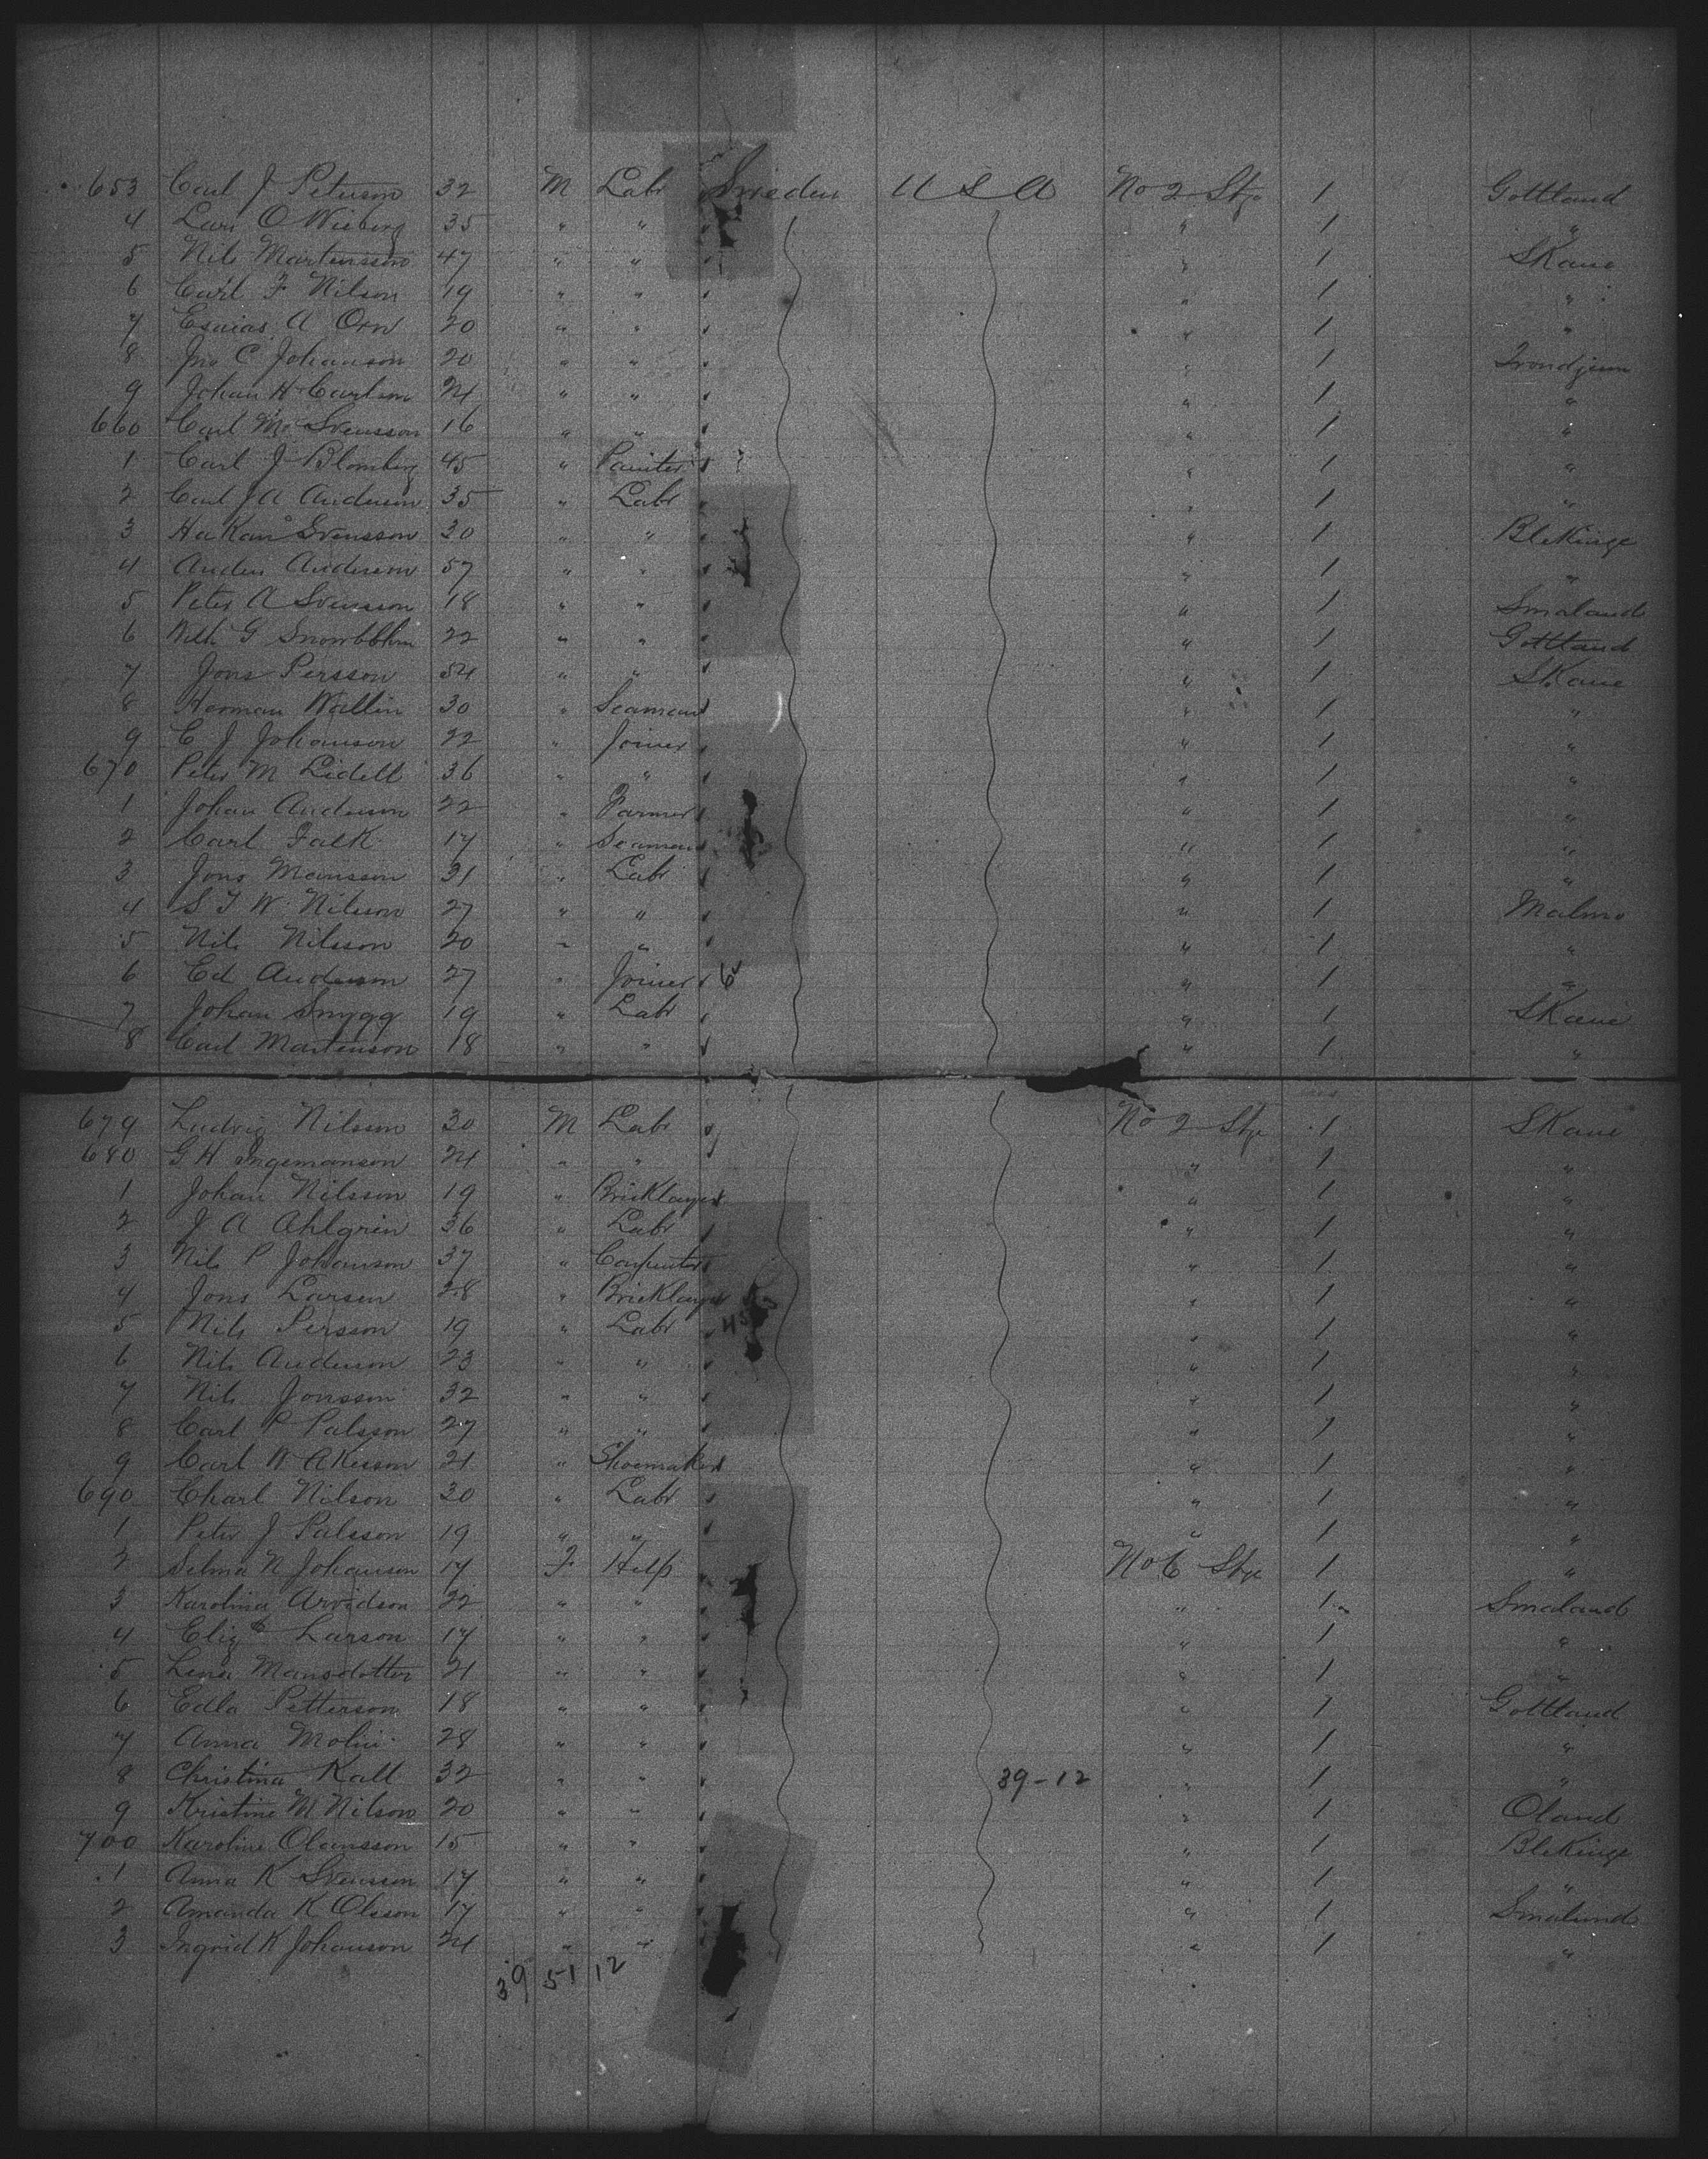 653 Carl J Peterson 32 M Labr Sweden U S A No 2 Stge 1 Gottland
4 Lars O Wieberg 35 " " " 1 "
5 Nils Martensson 47 " " " 1 Skane
6 Carl F Nilson 19 " " " 1 "
7 Esaias A Orn 20 " " " 1 "
8 Jno C Johanson 20 " " " 1 Trondjem
9 Johan H Carlson 24 " " " 1 "
660 Carl M Svensson 16 " " " 1 "
1 Carl J Blomberg 45 " Painter " 1 "
2 Carl J A Anderson 35 " Labr " 1 "
3 Hakan Svensson 30 " " " 1 Blekinge
4 Anders Anderson 57 " " " 1 "
5 Peter A Svensson 18 " " " 1 Smaland
6 G 22 " " " 1 Gottland
7 Jons Persson 54 " " " 1 Skane
8 Herman Wallin 30 " Seaman " 1 "
9 C J Johanson 22 " Joiner " 1 "
670 Peter M Lidell 36 " " " 1 "
1 Johan Anderson 22 " Farmer " 1 "
2 Carl Falk 17 " Seaman " 1 "
3 Jons Mansson 31 " Labr " 1 "
4 S T W Nilsson 27 " " " 1 Malmo
5 Nils Nilsson 20 " " " 1 "
6 Ed Anderson 27 " Joiner 6 " 1 "
7 Johan Snygg 19 " Labr " 1 Skane
8 Carl Martenson 18 " " " 1 "
679 Ludvig Nilsson 30 M Labr No 2 Stge 1 Skane
680 G H Ingemanson 24 " " " 1 "
1 Johan Nilsson 19 " Bricklayer " 1 "
2 J A Ahlgrin 36 " Labr " 1 "
3 Nils P Johanson 37 " Carpenter " 1 "
4 Jons Larsen 28 " Bricklayer " 1 "
5 Nils Persson 19 " Labr " 1 "
6 Nils Anderson 23 " " " 1 "
7 Nils Jonsson 32 " " " 1 "
8 Carl P Palsson 27 " " " 1 "
9 Carl W Akesson 21 " Shoemaker " 1 "
690 Charl Nilson 30 " Labr " 1 "
1 Peter J Palsson 19 " " " 1 "
2 Selma N Johanson 17 F Help No 6 Stge 1 "
3 Karolina Arvidson 22 " " " 1 Smaland
4 Eliz Larson 17 " " " 1 "
5 Lena Mansdotter 21 " " " 1 "
6 Edla Petterson 18 " " " 1 Gottland
7 Anna Molin 28 " " " 1 "
8 Christina Kall 32 " " 39-12 " 1 "
9 Kristine M Nilson 20 " " " 1 Oland
700 Karoline Olansson 15 " " " 1 Blekinge
1 Anna K Svensson 17 " " " 1 "
2 Amanda K Olsson 17 " " " 1 Smaland
3 Ingrid K Johanson 24 " " " 1 "
39 51 12